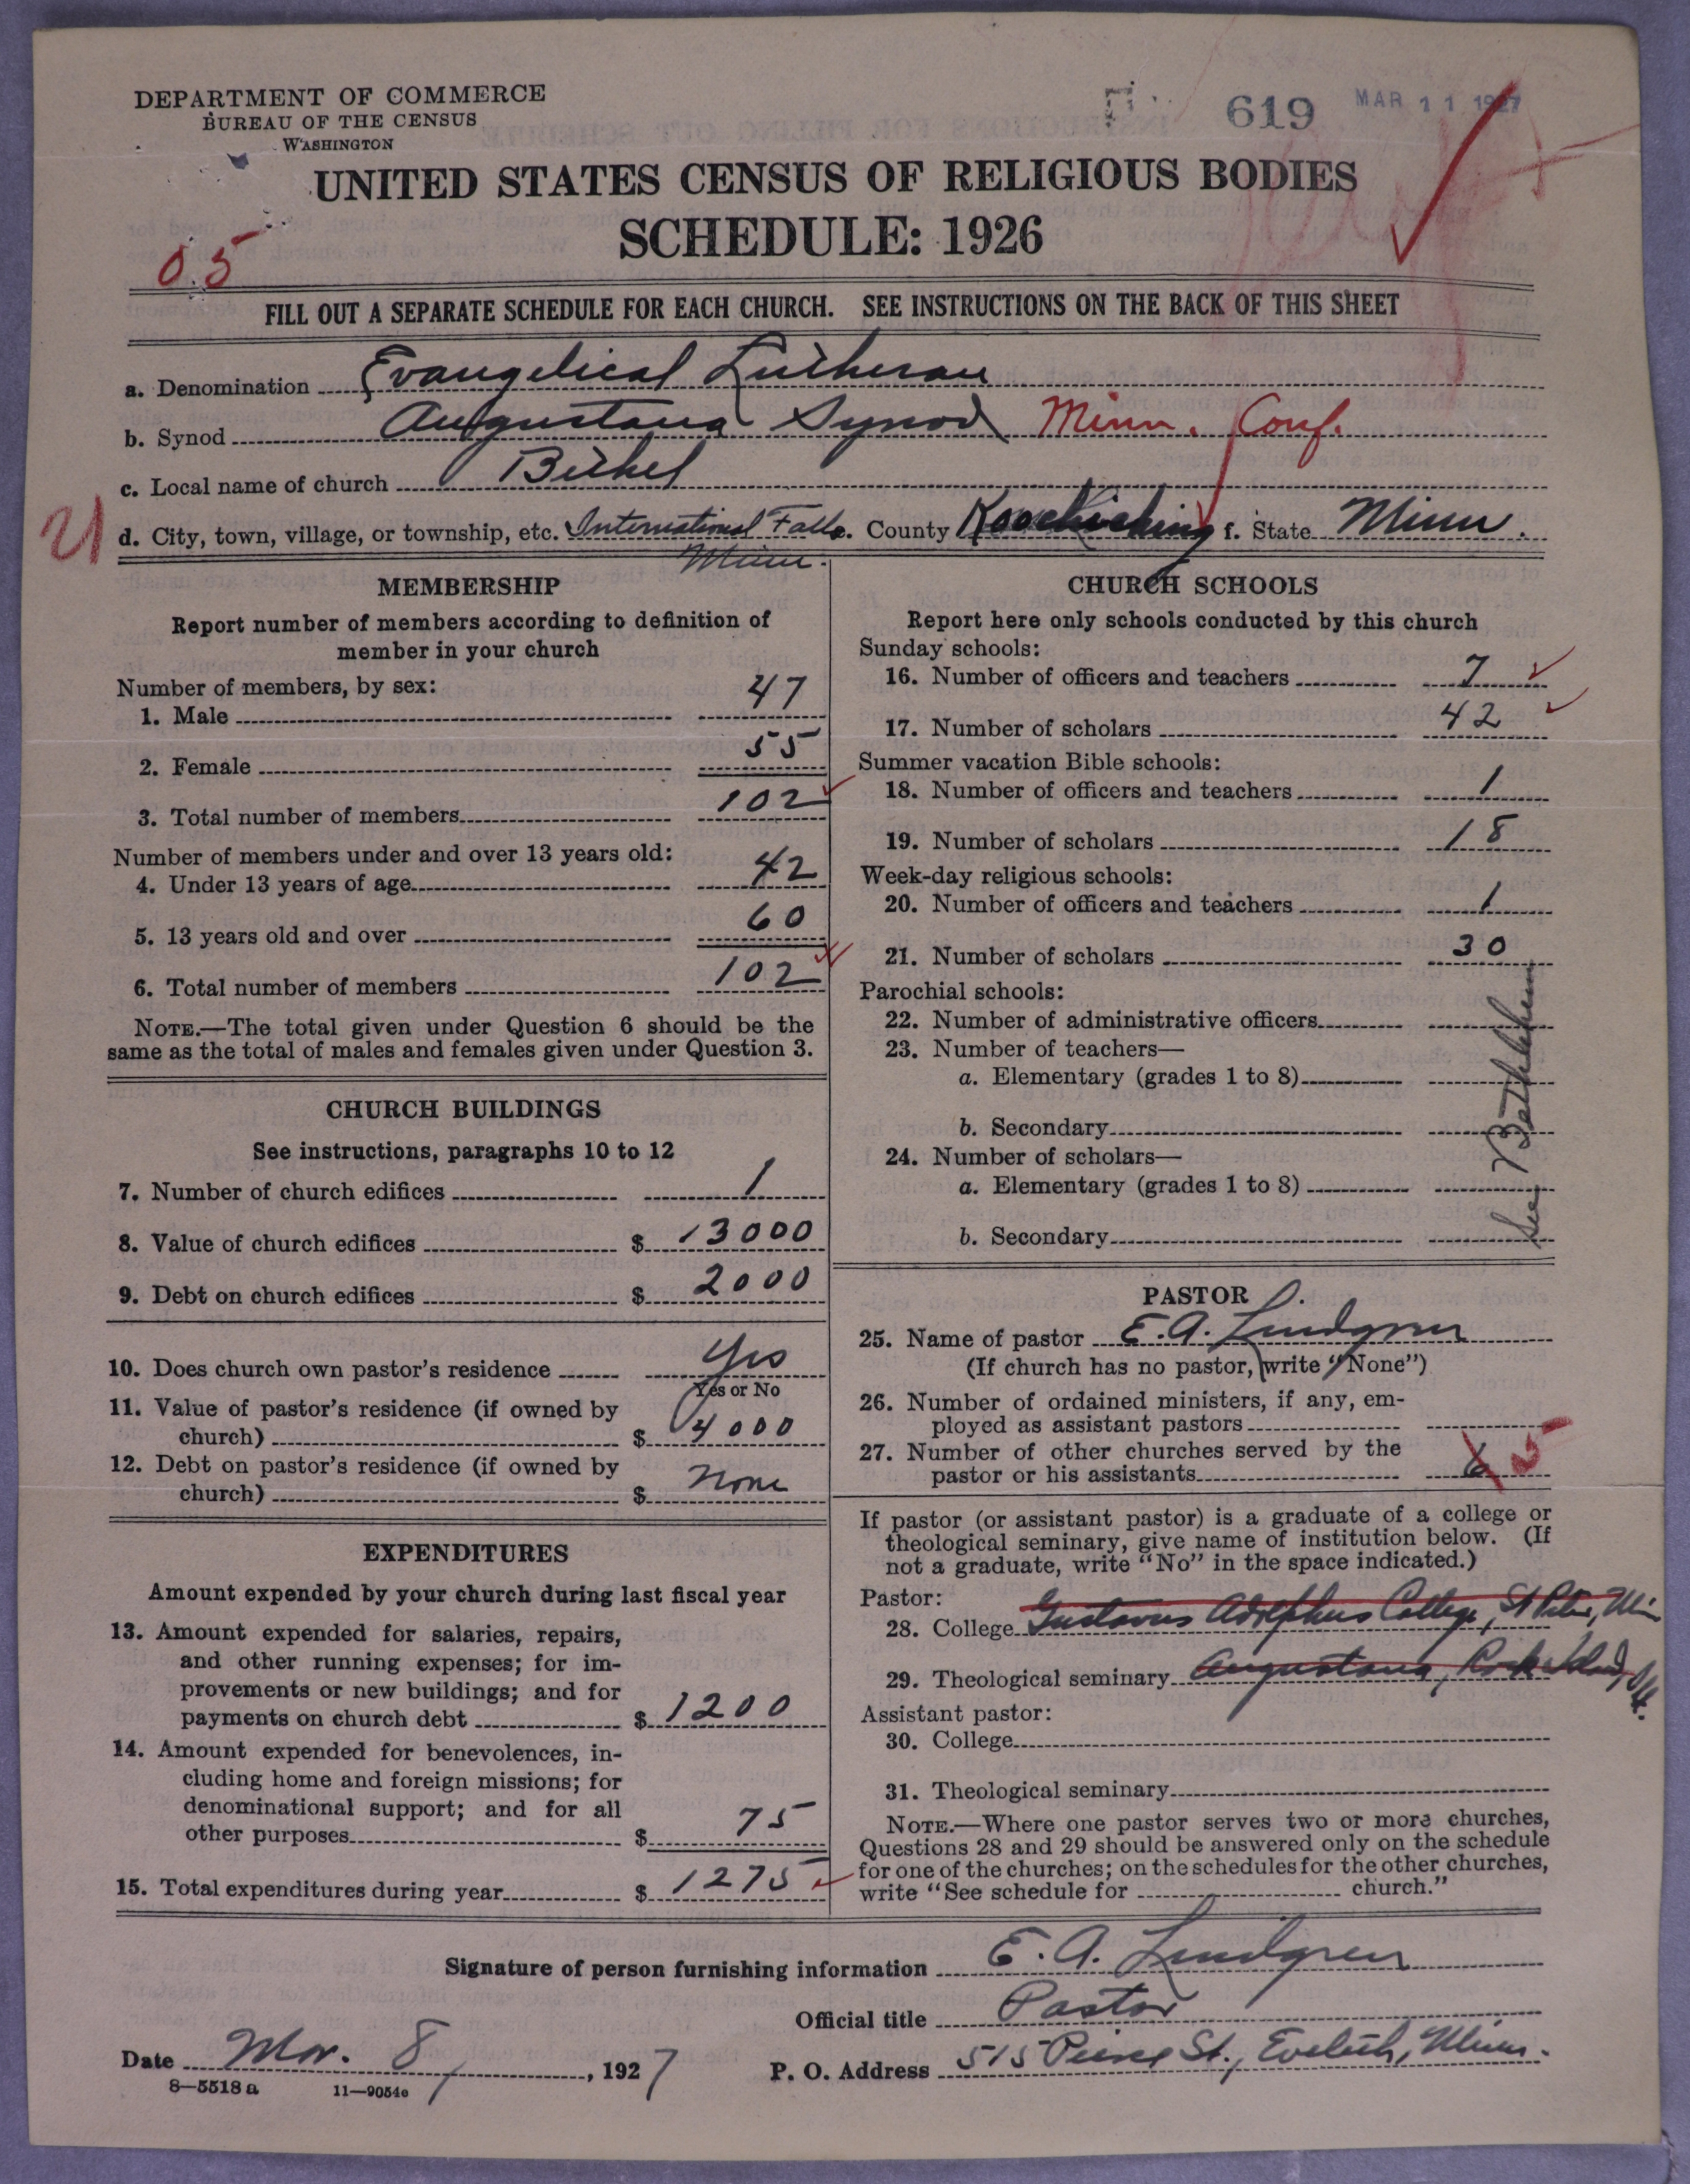 DEPARTMENT OF COMMERCE
BUREAU OF THE CENSUS
WASHINGTON
619 MAR 11 1927
UNITED STATES CENSUS OF RELIGIOUS BODIES
SCHEDULE: 1926
05
FILL OUT A SEPARATE SCHEDULE FOR EACH CHURCH. SEE INSTRUCTIONS ON THE BACK OF THIS SHEET
a. Denomination Evangelical Lutheran
b. Synod Augustana Synod Minn. Conf.
c. Local name of church Bethel
d. City, town, village, or township, etc. International Falls Minn. e. County Koochiching f. State Minn.
MEMBERSHIP
Report number of members according to definition of
member in your church
Number of members, by sex:
1. Male 47
2. Female 55
3. Total number of members 102
Number of members under and over 13 years old:
4. Under 13 years of age 42
5. 13 years old and over 60
6. Total number of members 102
NOTE.—The total given under Question 6 should be the
same as the total of males and females given under Question 3.
CHURCH BUILDINGS
See instructions, paragraphs 10 to 12
7. Number of church edifices 1
8. Value of church edifices $ 13000
9. Debt on church edifices $ 2000
10. Does church own pastor's residence Yes
Yes or No
11. Value of pastor's residence (if owned by
church) $ 4000
12. Debt on pastor's residence (if owned by
church) $ None
EXPENDITURES
Amount expended by your church during last fiscal year
13. Amount expended for salaries, repairs,
and other running expenses; for im-
provements or new buildings; and for
payments on church debt $ 1200
14. Amount expended for benevolences, in-
cluding home and foreign missions; for
denominational support; and for all
other purposes $ 75
15. Total expenditures during year $ 1275
CHURCH SCHOOLS
Report here only schools conducted by this church
Sunday schools:
16. Number of officers and teachers 7
17. Number of scholars 42
Summer vacation Bible schools:
18. Number of officers and teachers 1
19. Number of scholars 18
Week-day religious schools:
20. Number of officers and teachers 1
21. Number of scholars 30
Parochial schools:
22. Number of administrative officers
23. Number of teachers—
a. Elementary (grades 1 to 8)
b. Secondary
24. Number of scholars—
a. Elementary (grades 1 to 8)
b. Secondary
See Bethlehem
PASTOR
25. Name of pastor E. A. Lindgren
(If church has no pastor, write "None")
26. Number of ordained ministers, if any, em-
ployed as assistant pastors
27. Number of other churches served by the
pastor or his assistants 6 5
If pastor (or assistant pastor) is a graduate of a college or
theological seminary, give name of institution below. (If
not a graduate, write "No" in the space indicated.)
Pastor:
28. College Gustavus Adolphus College, St Peter, Min
29. Theological seminary Augustana, Rock Island, Ill.
Assistant pastor:
30. College
31. Theological seminary
NOTE.—Where one pastor serves two or more churches,
Questions 28 and 29 should be answered only on the schedule
for one of the churches; on the schedules for the other churches,
write "See schedule for church."
Signature of person furnishing information E. A. Lindgren
Official title Pastor
Date Mar. 8, 1927 P. O. Address 515 Pierce St., Eveleth, Minn.
8—5518a 11—9054e